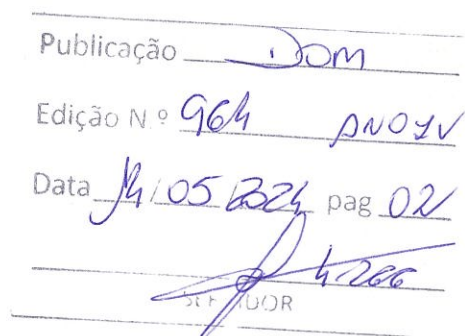 Publicação DOM
Edição N.º 964 ANO IV
Data 14/05/2024 pag 02
4266
SERVIDOR